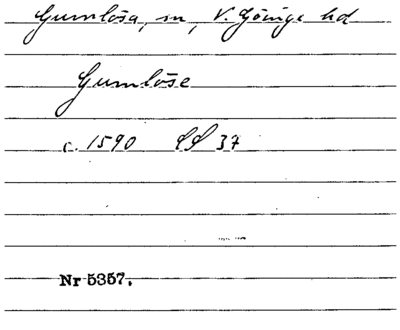 Gumlösa, sn, V. Göinge hd
Gumløse
c. 1590 LL 37
Nr 5357.